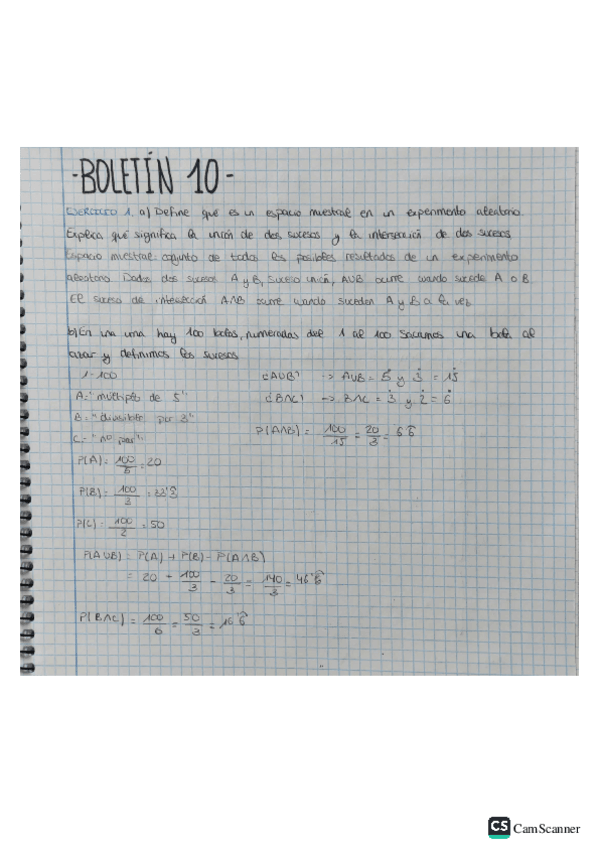 -BOLETÍN 10-
EJERCICIO 1. a) Define que es un espacio muestral en un experimento aleatorio.
Explica qué significa la unión de dos sucesos y la intersección de dos sucesos
Espacio muestral conjunto de todos los posibles resultados de un experimento
aleatorio Dados dos sucesos A y B, suceso unión, AUB ocurre cuando sucede A o B.
El suceso de intersección A∩B ocurre cuando suceden A y B a la vez
b) En una urna hay 100 bolas, numeradas del 1 al 100 Sacamos una bola al
azar y definimos los sucesos
1-100
A="múltiplo de 5"
B = "divisible por 3"
C = "nº par"
P(A) = 100/5 = 20
P(B) = 100/3 = 33'3̂
P(C) = 100/2 = 50
P(AUB) = P(A) + P(B) - P(A∩B)
= 20 + 100/3 - 20/3 = 140/3 = 46'6̂
P(B∩C) = 100/6 = 50/3 = 16'6̂
¿AUB? -> AUB = 5̇ y 3̇ = 15̇
¿B∩C? -> B∩C = 3̇ y 2̇ = 6̇
P(A∩B) = 100/15 = 20/3 = 6'6̂
CS CamScanner